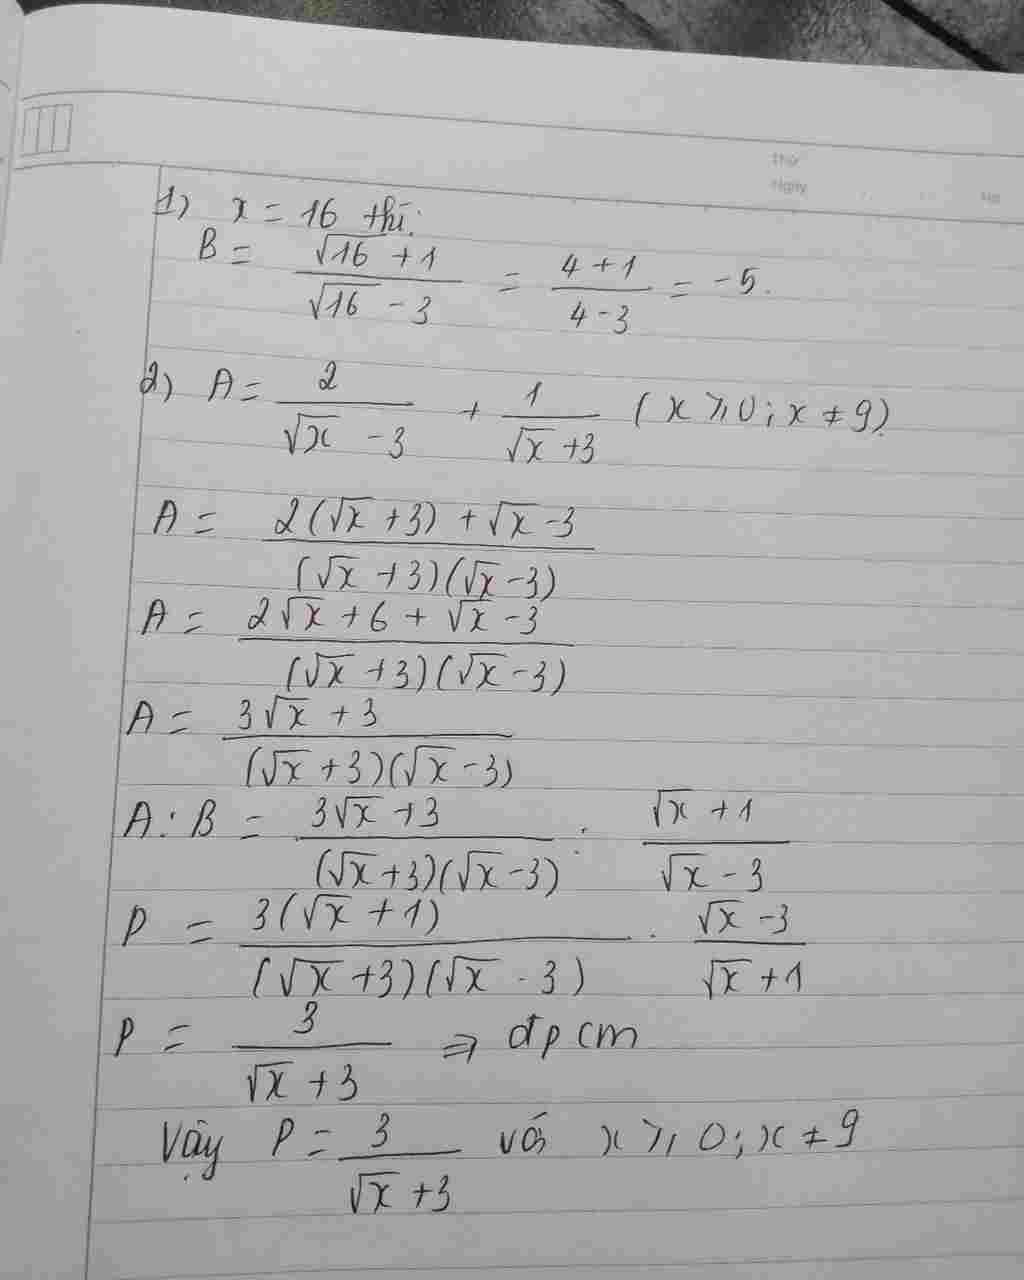 Thứ
Ngày
No
1) x = 16 thì:
B = \frac{\sqrt{16} + 1}{\sqrt{16} - 3} = \frac{4 + 1}{4 - 3} = -5.
2) A = \frac{2}{\sqrt{x} - 3} + \frac{1}{\sqrt{x} + 3} (x ≥ 0; x ≠ 9)
A = \frac{2(\sqrt{x} + 3) + \sqrt{x} - 3}{(\sqrt{x} + 3)(\sqrt{x} - 3)}
A = \frac{2\sqrt{x} + 6 + \sqrt{x} - 3}{(\sqrt{x} + 3)(\sqrt{x} - 3)}
A = \frac{3\sqrt{x} + 3}{(\sqrt{x} + 3)(\sqrt{x} - 3)}
A : B = \frac{3\sqrt{x} + 3}{(\sqrt{x} + 3)(\sqrt{x} - 3)} : \frac{\sqrt{x} + 1}{\sqrt{x} - 3}
P = \frac{3(\sqrt{x} + 1)}{(\sqrt{x} + 3)(\sqrt{x} - 3)} . \frac{\sqrt{x} - 3}{\sqrt{x} + 1}
P = \frac{3}{\sqrt{x} + 3} ⇒ đpcm
Vậy P = \frac{3}{\sqrt{x} + 3} với x ≥ 0; x ≠ 9